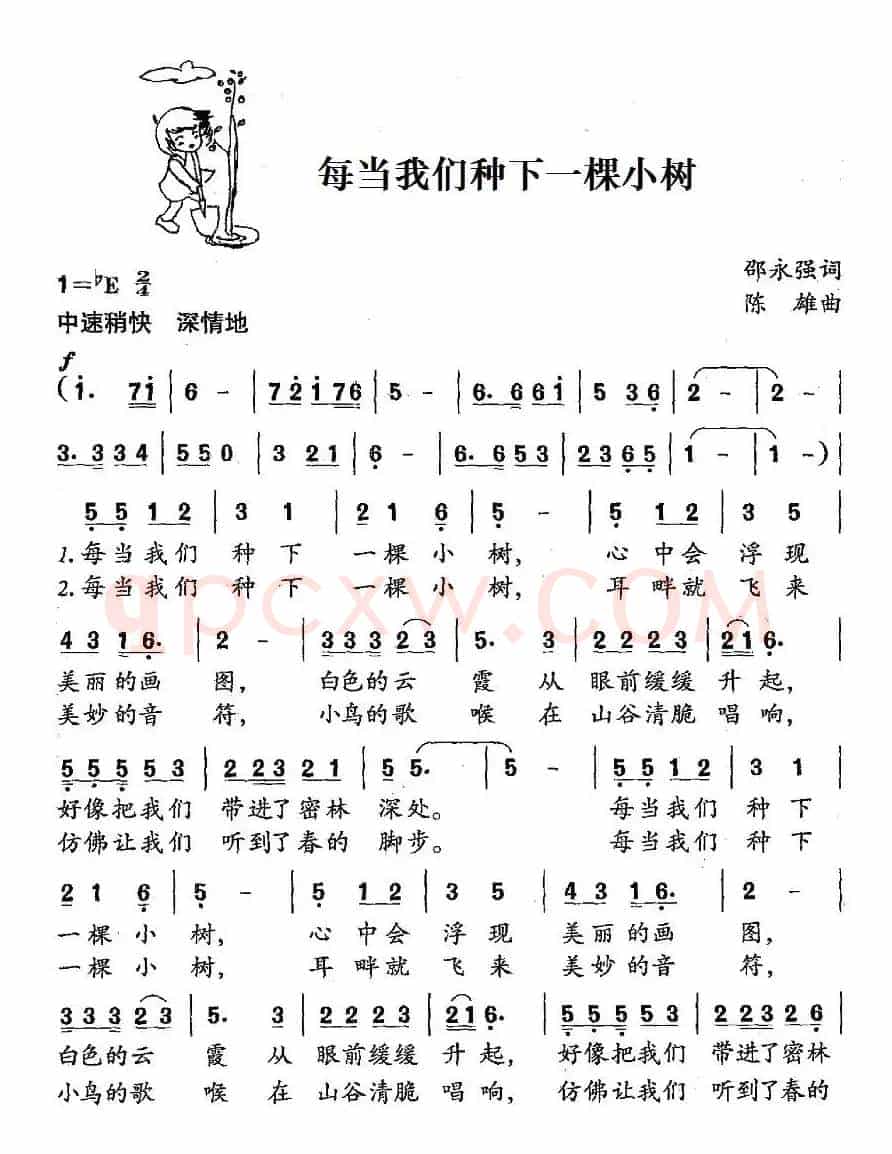 每当我们种下一棵小树
邵永强词
1=♭E 2/4
陈 雄曲
中速稍快 深情地
f
(i. 7i | 6 - | 72 i76 | 5 - | 6. 661 | 5 36 | 2 - | 2 - |
3. 334 | 550 | 3 21 | 6 - | 6. 653 | 2365 | 1 - | 1 -) |
55 12 | 3 1 | 21 6 | 5 - | 5 12 | 3 5 |
1.每当我们 种 下 一棵 小 树, 心 中会 浮 现
2.每当我们 种 下 一棵 小 树, 耳 畔就 飞 来
qpcxw.COM
43 16. | 2 - | 333 23 | 5. 3 | 222 3 | 216. |
美丽的画 图, 白色的云 霞 从 眼前缓缓 升 起,
美妙的音 符, 小鸟的歌 喉 在 山谷清脆 唱 响,
555 53 | 223 21 | 5 5. | 5 - | 55 12 | 3 1 |
好像把我们 带进了密林 深处。 每当我们 种 下
仿佛让我们 听到了春的 脚步。 每当我们 种 下
21 6 | 5 - | 5 12 | 3 5 | 43 16. | 2 - |
一棵 小 树, 心 中会 浮 现 美丽的画 图,
一棵 小 树, 耳 畔就 飞 来 美妙的音 符,
333 23 | 5. 3 | 222 3 | 216. | 555 53 | 223 26 |
白色的云 霞 从 眼前缓缓 升 起, 好像把我们 带进了密林
小鸟的歌 喉 在 山谷清脆 唱 响, 仿佛让我们 听到了春的